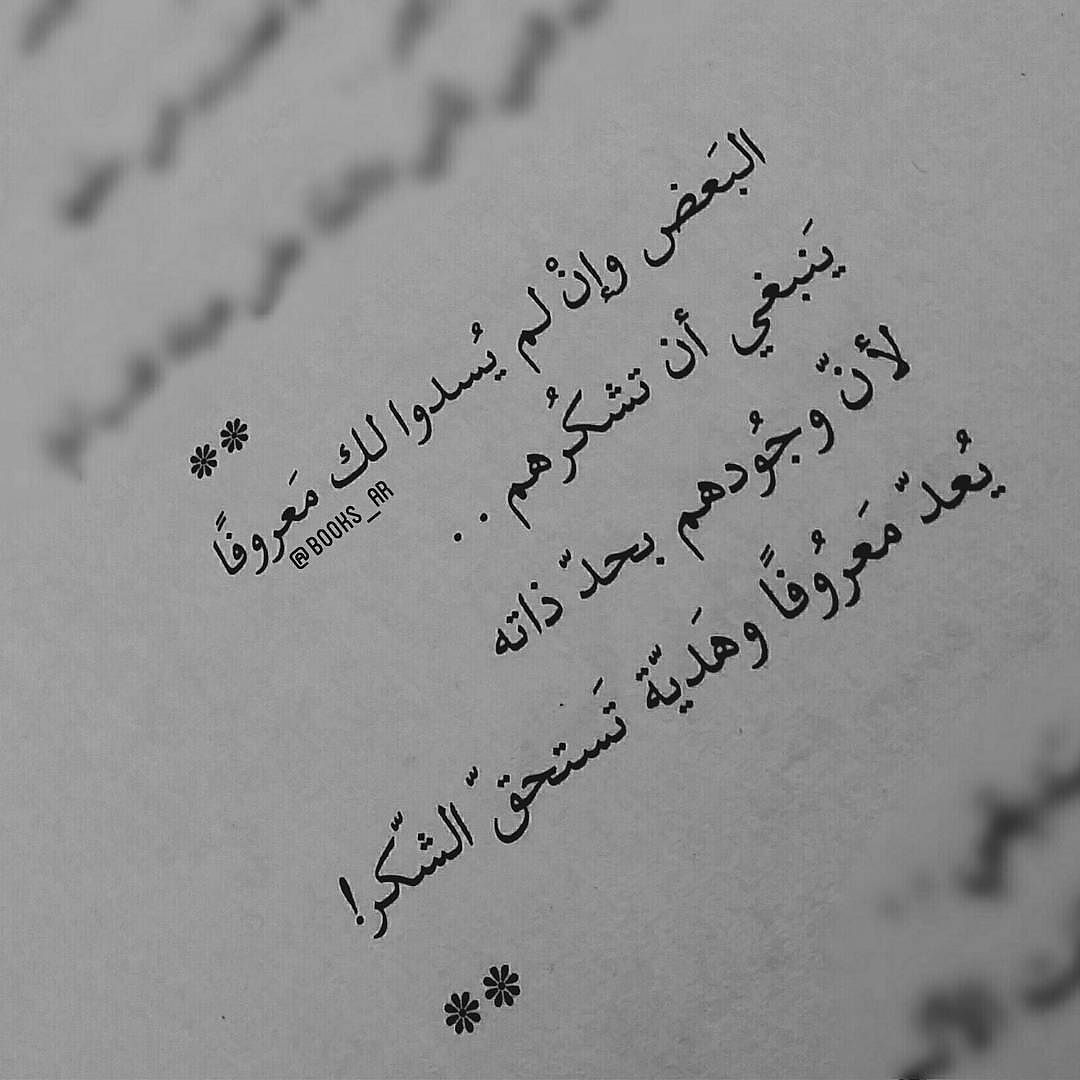 البَعض وإنْ لم يُسدوا لك مَعروفًا
@BOOKS_AR
يَنبغي أن تشكرُهم . .
لأنّ وجُودهم بحدّ ذاته
يُعدّ مَعرُوفًا وهَديّة تَستحقّ الشّكر!